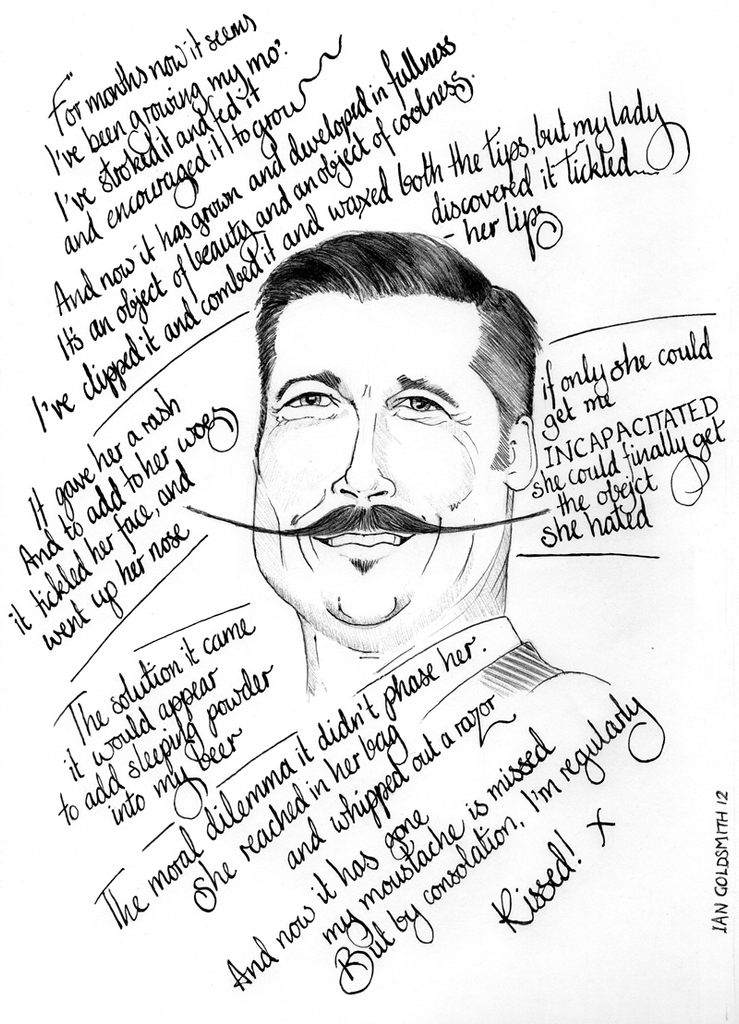 For months now it seems
I've been growing my mo'.
I've stroked it and fed it
and encouraged it to grow
And now it has grown and developed in fullness
It's an object of beauty and an object of coolness.
I've clipped it and combed it and waxed both the tips, but my lady
discovered it tickled....
- her lips
It gave her a rash
And to add to her woes
it tickled her face, and
went up her nose
if only she could
get me
INCAPACITATED
she could finally get
the object
she hated
The solution it came
it would appear
to add sleeping powder
into my beer
The moral dilemma it didn't phase her.
She reached in her bag
and whipped out a razor
And now it has gone
my moustache is missed
But by consolation, I'm regularly
Kissed! X
IAN GOLDSMITH 12